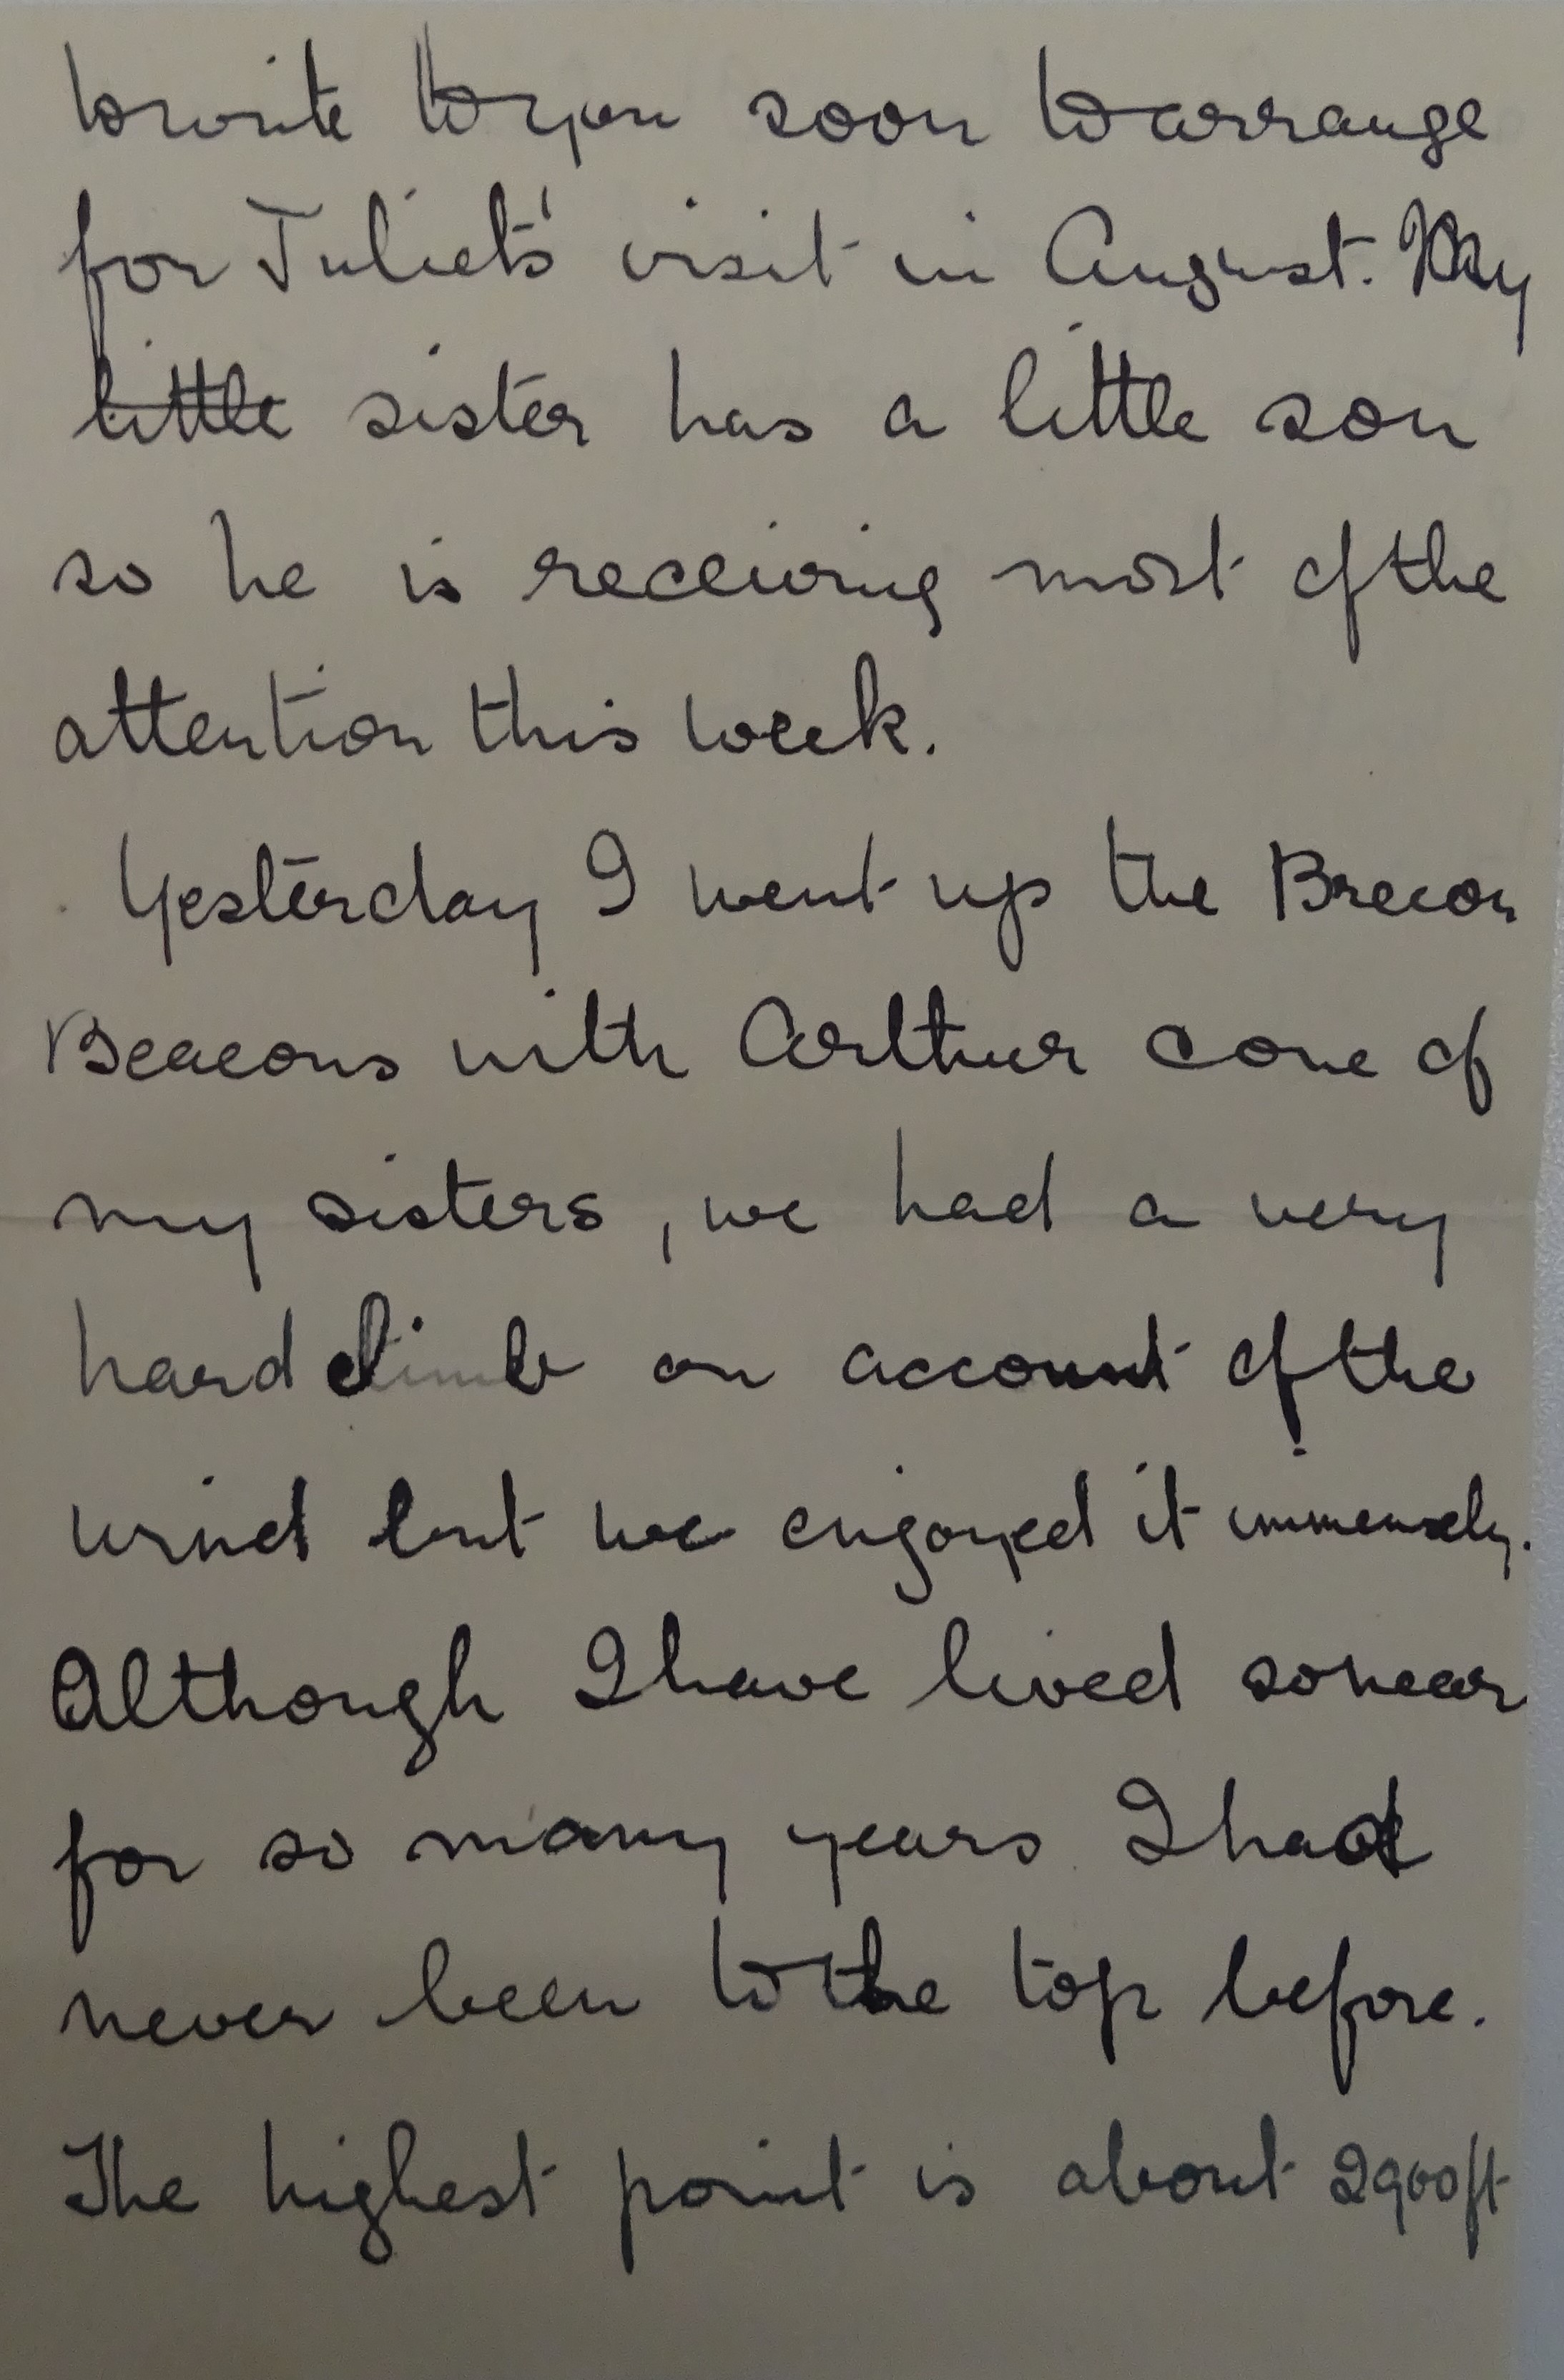 to write to you soon to arrange
for Juliet's visit in August. My
little sister has a little son
so he is receiving most of the
attention this week.
Yesterday I went up the Brecon
Beacons with Arthur & one of
my sisters, we had a very
hard climb on account of the
wind but we enjoyed it immensely.
Although I have lived so near
for so many years I had
never been to the top before.
The highest point is about 2900ft